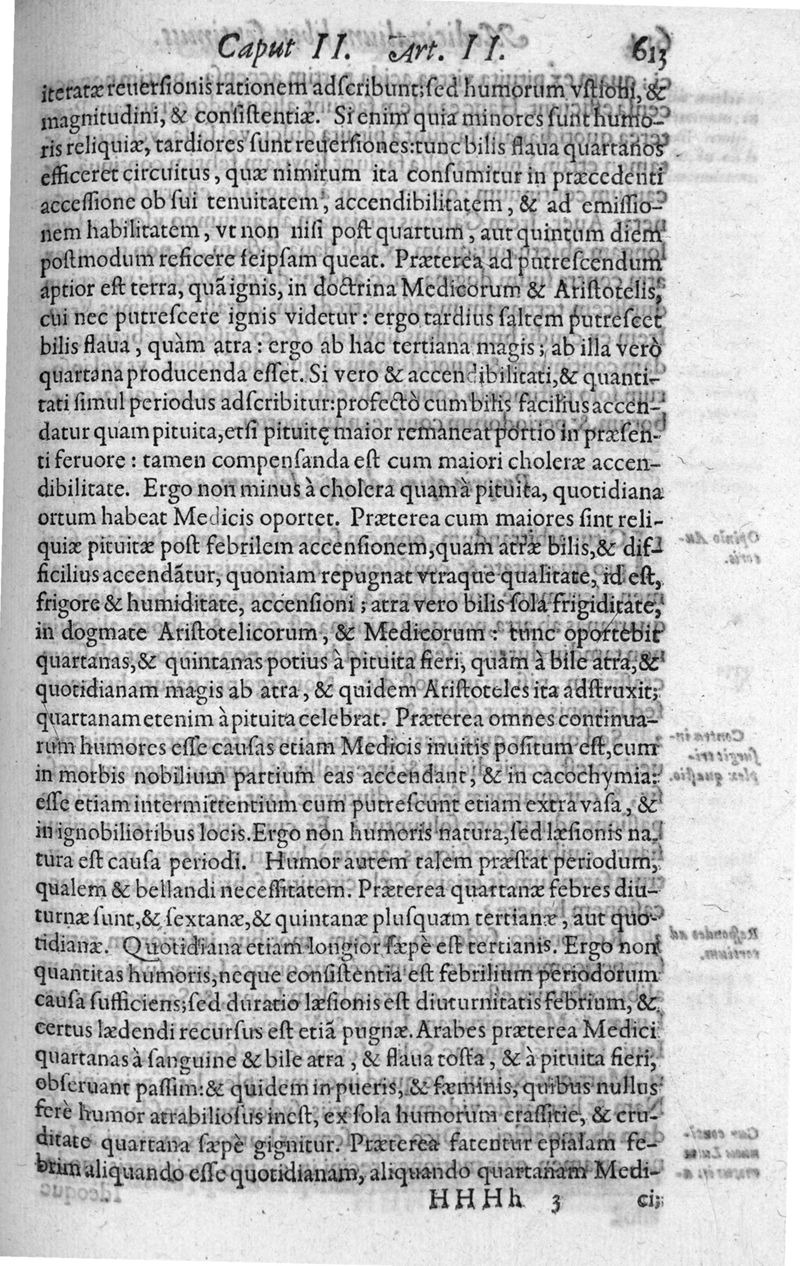 Caput II. Art. II. 613
iteratæ reuerſionis rationem adſcribunt; ſed humorum vſtioni, &
magnitudini, & conſiſtentiæ. Si enim quia minores ſunt humo-
ris reliquiæ, tardiores ſunt reuerſiones: tunc bilis flaua quartanos
efficeret circuitus, quæ nimirum ita conſumitur in præcedenti
acceſſione ob ſui tenuitatem, accendibilitatem, & ad emiſſio-
nem habilitatem, vt non niſi poſt quartum, aut quintum diem
poſtmodum reficere ſeipſam queat. Præterea ad putreſcendum
aptior eſt terra, quã ignis, in doctrina Medicorum & Ariſtotelis,
cui nec putreſcere ignis videtur: ergo tardius ſaltem putreſcet
bilis flaua, quàm atra: ergo ab hac tertiana magis; ab illa verò
quartana producenda eſſet. Si vero & accendibilitati, & quanti-
tati ſimul periodus adſcribitur: profectò cum bilis facilius accen-
datur quam pituita, etſi pituitę maior remaneat portio in præſen-
ti feruore: tamen compenſanda eſt cum maiori choleræ accen-
dibilitate. Ergo non minus à cholera quam à pituita, quotidiana
ortum habeat Medicis oportet. Præterea cum maiores ſint reli-
quiæ pituitæ poſt febrilem accenſionem, quam atræ bilis, & dif-
ficilius accendãtur, quoniam repugnat vtraque qualitate, id eſt,
frigore & humiditate, accenſioni; atra vero bilis ſola frigiditate,
in dogmate Ariſtotelicorum, & Medicorum: tunc oportebit
quartanas, & quintanas potius à pituita fieri, quàm à bile atra, &
quotidianam magis ab atra, & quidem Ariſtoteles ita adſtruxit;
quartanam etenim à pituita celebrat. Præterea omnes continua-
rum humores eſſe cauſas etiam Medicis inuitis poſitum eſt, cum
in morbis nobilium partium eas accendant, & in cacochymia:
eſſe etiam intermittentium cum putreſcunt etiam extra vaſa, &
in ignobilioribus locis. Ergo non humoris natura, ſed læſionis na
tura eſt cauſa periodi. Humor autem talem præſtat periodum,
qualem & bellandi neceſſitatem. Præterea quartanæ febres diu-
turnæ ſunt, & ſextanæ, & quintanæ pluſquam tertianæ, aut quo-
tidianæ. Quotidiana etiam longior ſæpè eſt tertianis. Ergo non
quantitas humoris, neque conſiſtentia eſt febrilium periodorum
cauſa ſufficiens; ſed duratio læſionis eſt diuturnitatis febrium, &
certus lædendi recurſus eſt etiã pugnæ. Arabes præterea Medici
quartanas à ſanguine & bile atra, & flaua toſta, & à pituita fieri,
obſeruant paſſim: & quidem in pueris, & fæminis, quibus nullus
ferè humor atrabilioſus ineſt, ex ſola humorum craſſitie, & cru-
ditate quartana ſæpè gignitur. Præterea fatentur epialam fe-
brim aliquando eſſe quotidianam, aliquando quartanam Medi-
HHHh 3 ci;